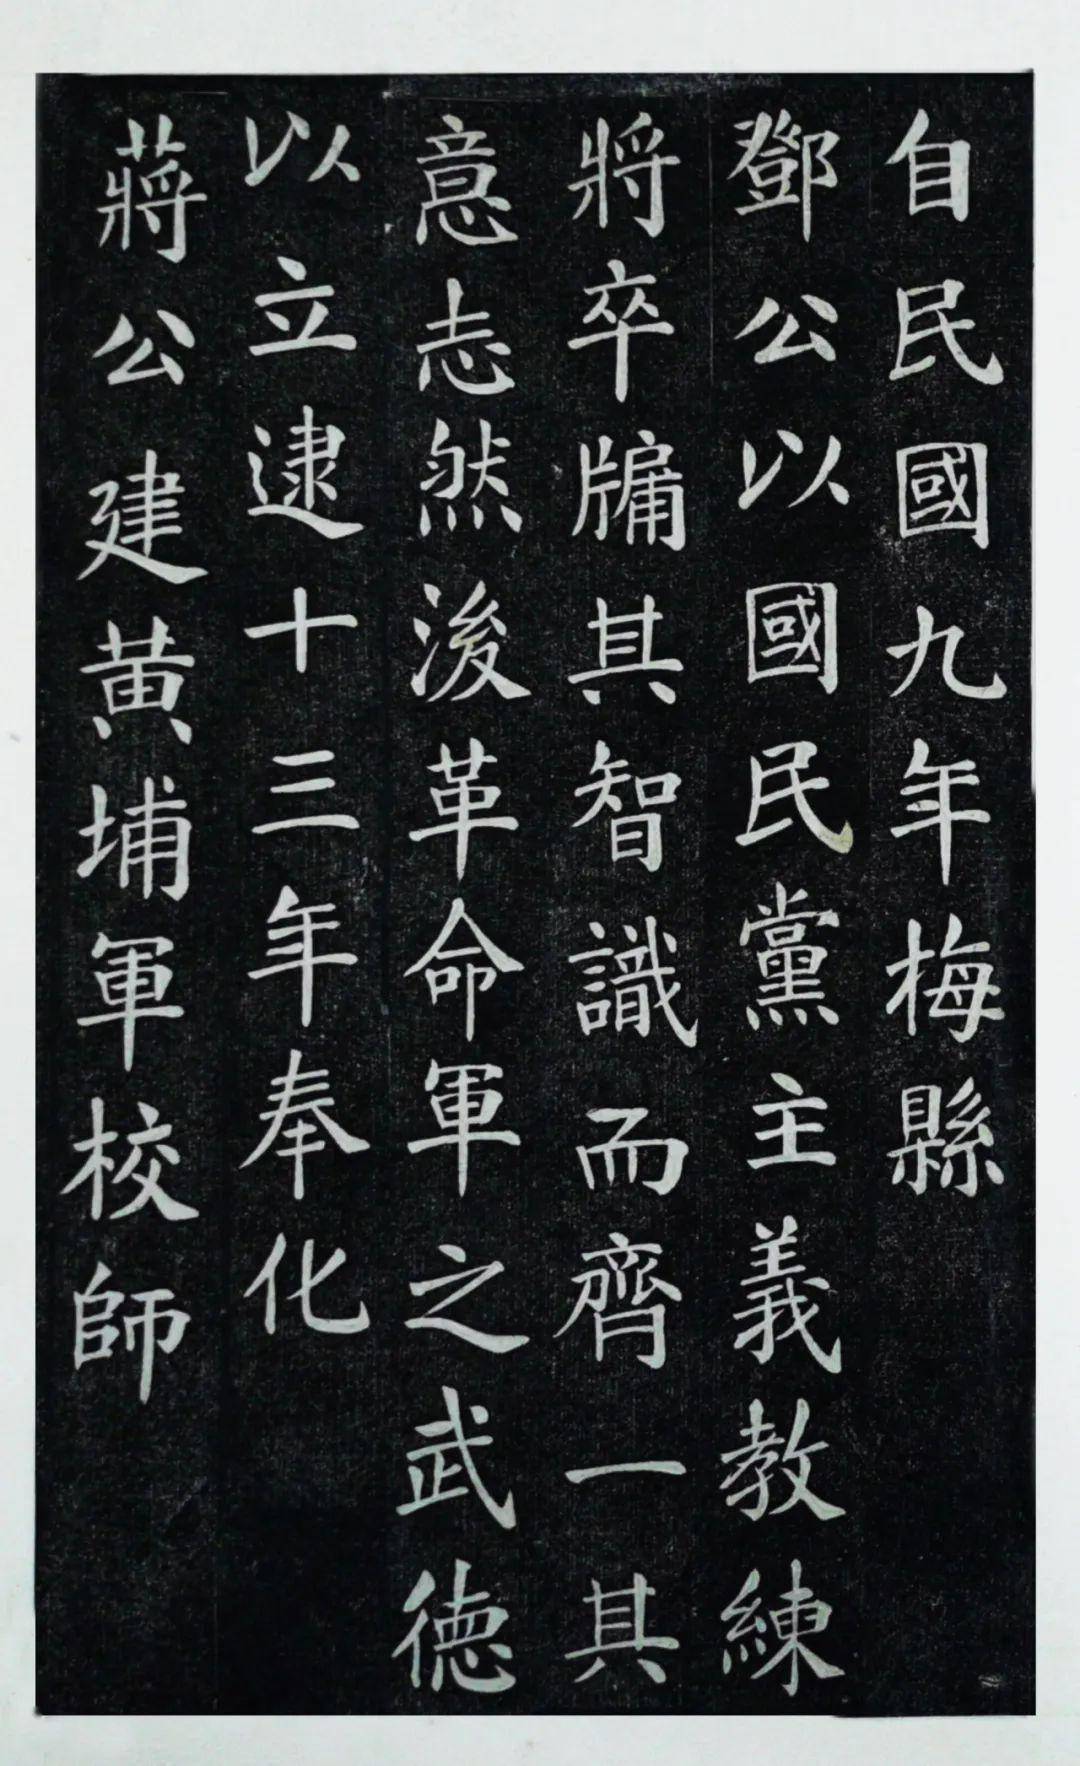 自民國九年梅縣
鄧公以國民黨主義教練
將卒牖其智識而齊一其
意志然後革命軍之武德
以立逮十三年奉化
蔣公建黃埔軍校師